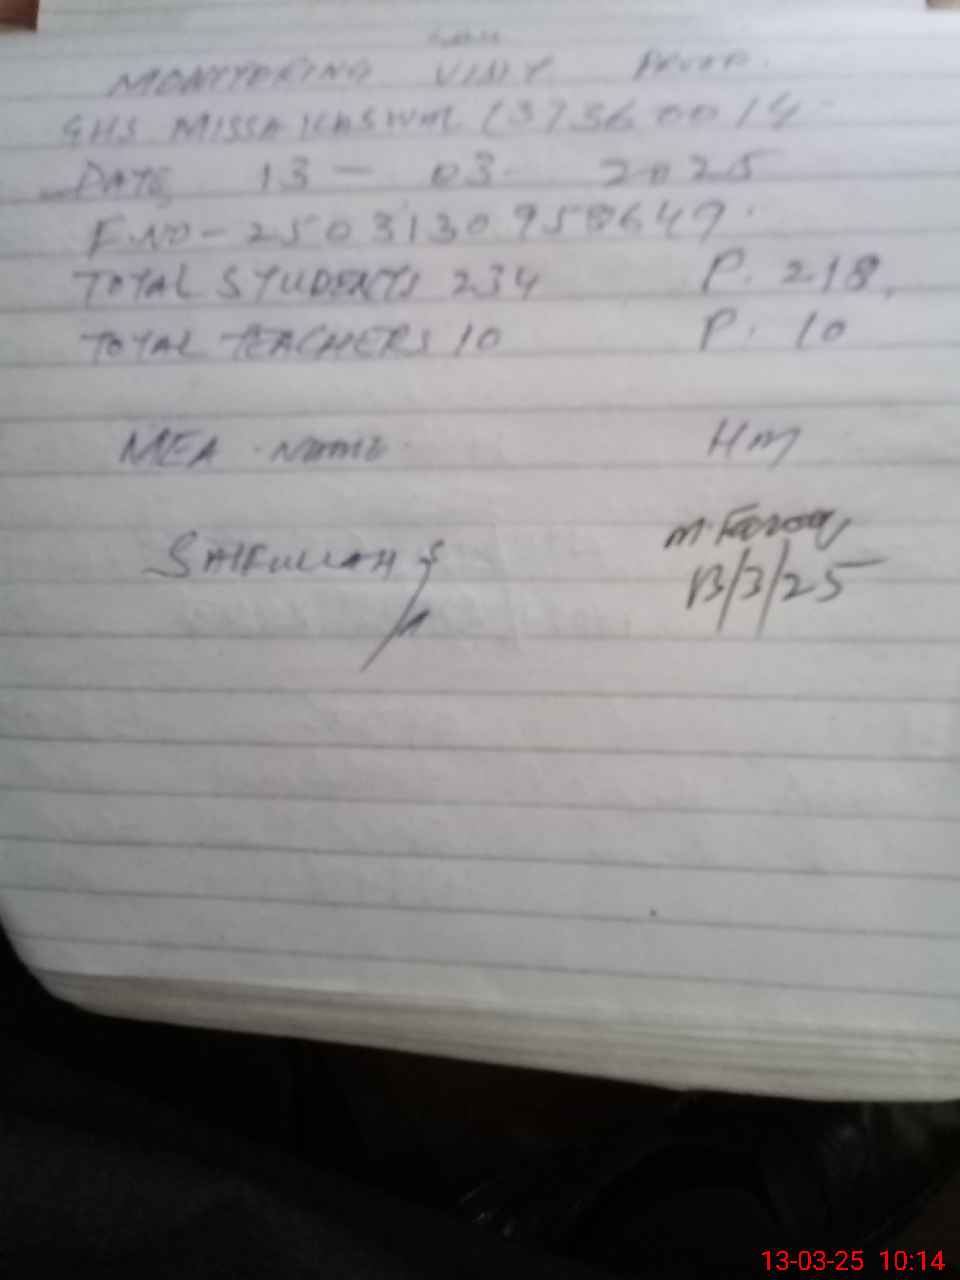 MONITORING VISIT PROOF.
GHS MISSA KASWAL (37360014
DATE 13 - 03 - 2025
F.NO - 2503130958649.
TOTAL STUDENTS 234 P. 218,
TOTAL TEACHERS 10 P. 10
MEA . NAME HM
SAIFULLAH M. Farooq
13/3/25
13-03-25 10:14